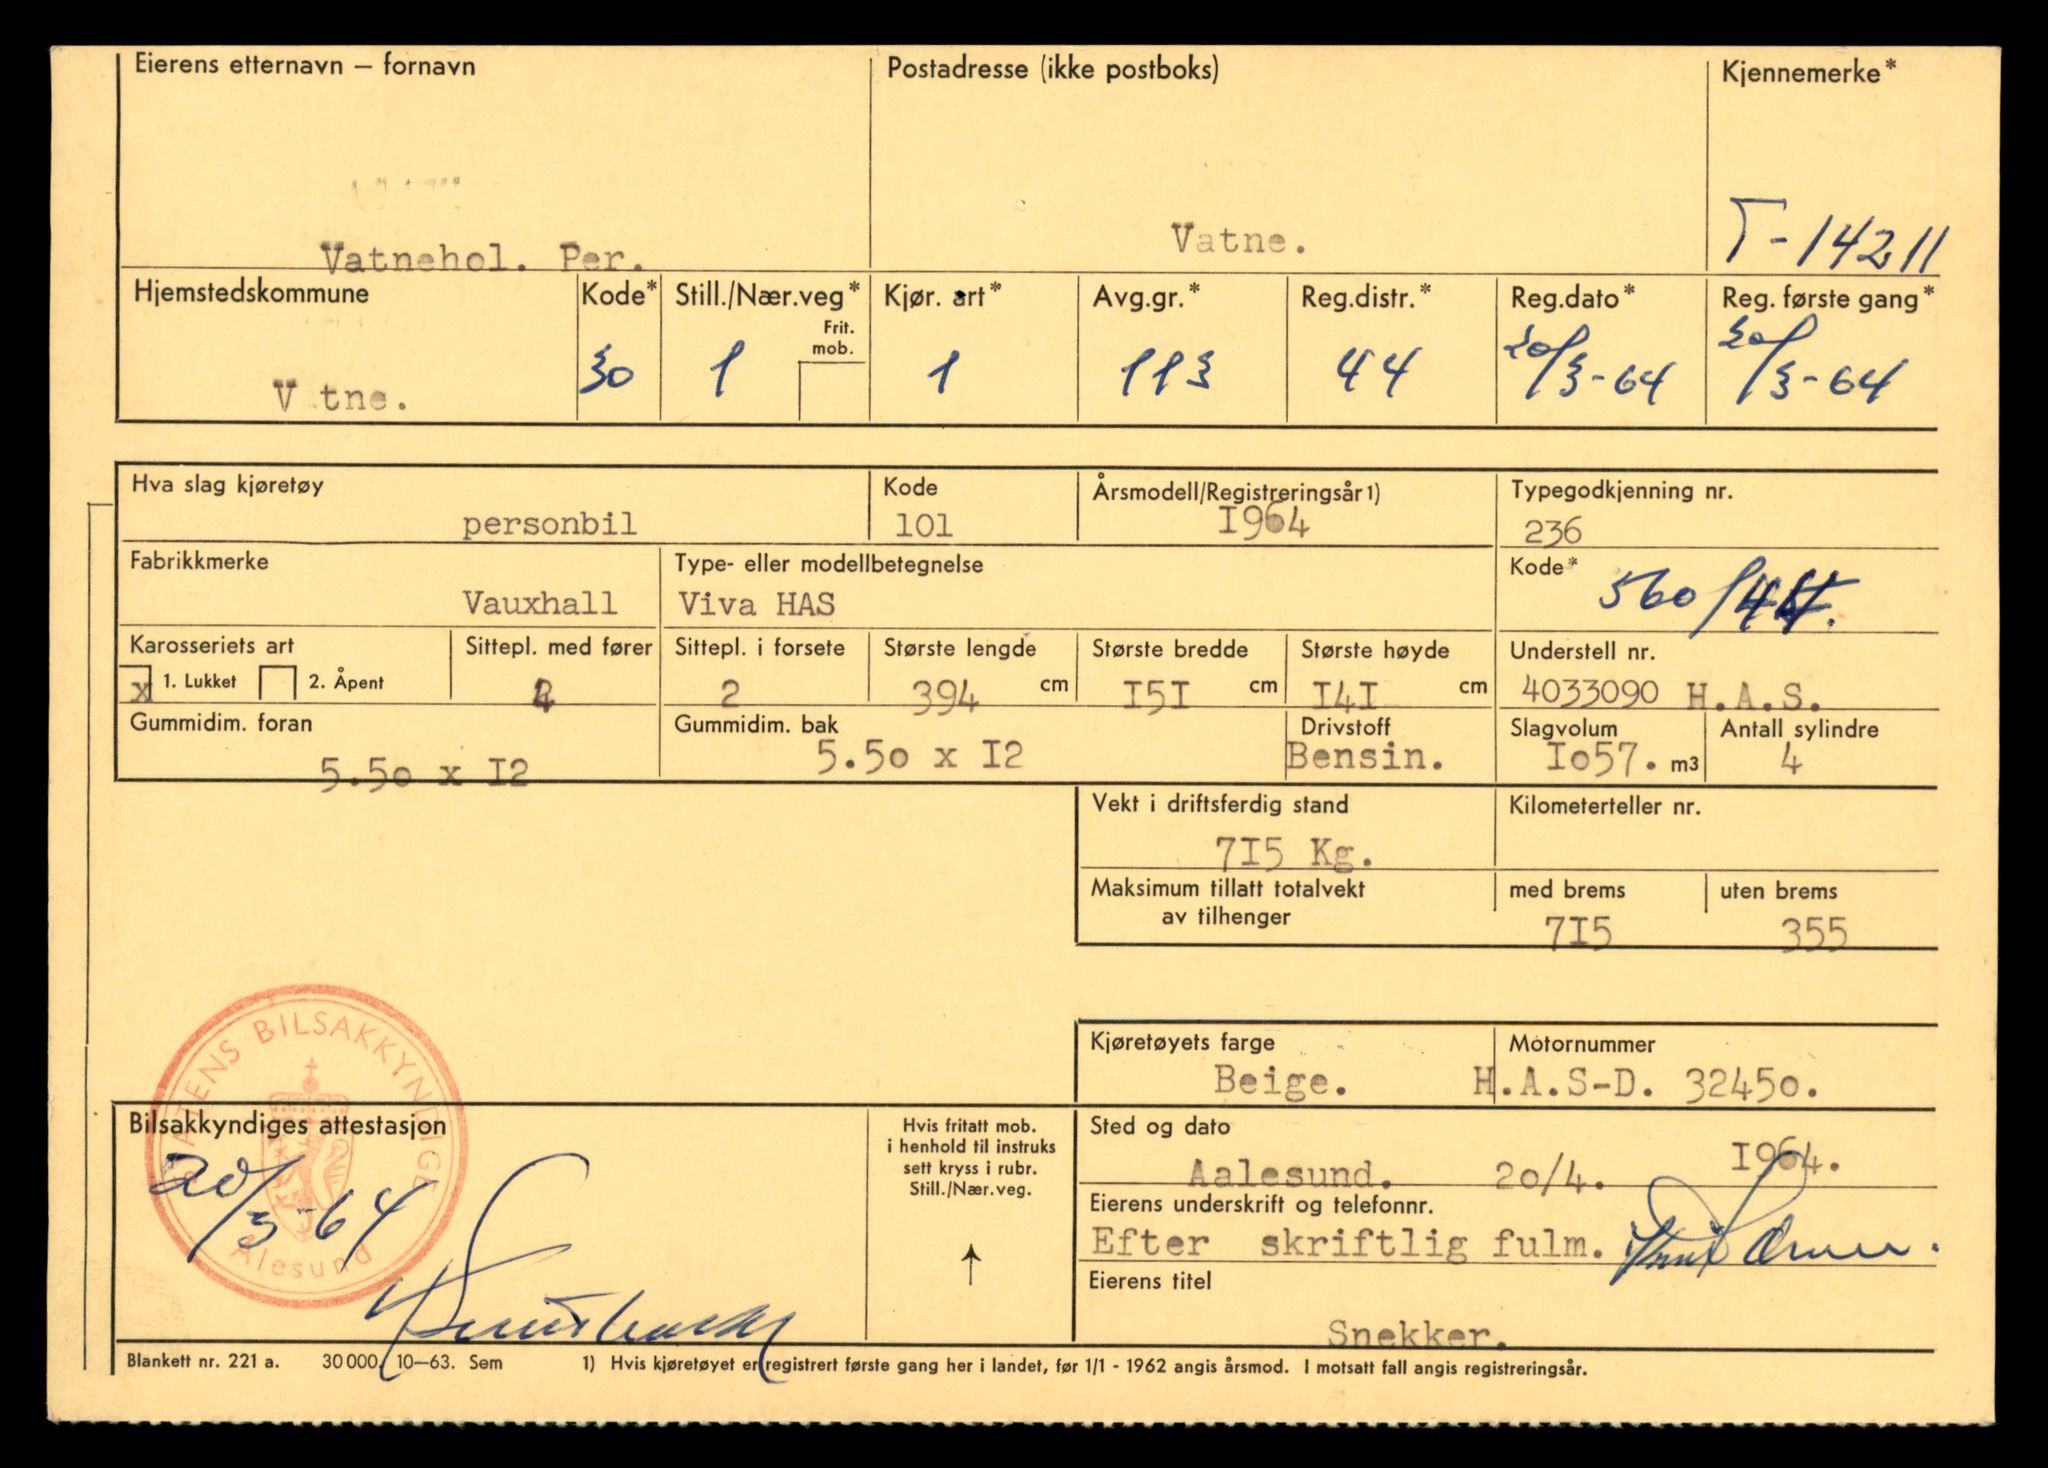 Eierens etternavn – fornavn
Postadresse (ikke postboks)
Kjennemerke*
Vatnehol. Per.
Vatne.
T-14211
Hjemstedskommune
Kode*
Still./Nær.veg*
Frit. mob.
Kjør. art*
Avg.gr.*
Reg.distr.*
Reg.dato*
Reg. første gang*
V tne.
30
1
1
113
44
20/3-64
20/3-64
Hva slag kjøretøy
Kode
Årsmodell/Registreringsår 1)
Typegodkjenning nr.
personbil
101
I964
236
Fabrikkmerke
Type- eller modellbetegnelse
Kode*
Vauxhall
Viva HAS
560/44.
Karosseriets art
Sittepl. med fører
Sittepl. i forsete
Største lengde
Største bredde
Største høyde
Understell nr.
x 1. Lukket
2. Åpent
4
2
394 cm
I5I cm
I4I cm
4033090 H.A.S.
Gummidim. foran
Gummidim. bak
Drivstoff
Slagvolum
Antall sylindre
5.5o x I2
5.5o x I2
Bensin.
Io57. m3
4
Vekt i driftsferdig stand
Kilometerteller nr.
7I5 Kg.
Maksimum tillatt totalvekt
av tilhenger
med brems
uten brems
7I5
355
Kjøretøyets farge
Motornummer
Beige.
H.A.S-D. 3245o.
STATENS BILSAKKYNDIGE
Ålesund
Bilsakkyndiges attestasjon
20/3-64
Hvis fritatt mob.
i henhold til instruks
sett kryss i rubr.
Still./Nær.veg.
Sted og dato
Aalesund. 2o/4. I964.
Eierens underskrift og telefonnr.
Efter skriftlig fulm.
Eierens titel
Snekker.
Blankett nr. 221 a. 30 000. 10–63. Sem
1) Hvis kjøretøyet er registrert første gang her i landet, før 1/1 - 1962 angis årsmod. I motsatt fall angis registreringsår.